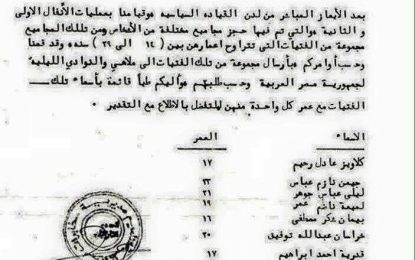 بعد الأيعاز المباشر من لدن القيادة السياسية وقيامنا بعمليات الأنفال الاولى
و الثانية والتي تم فيها حجز مجاميع مختلفة من الأنفاس ومن تلك المجاميع
مجموعة من الفتيات التي تتراوح اعمارهن بين (١٤ الى ٢٩) سنه وقد قمنا
وحسب أوامركم بأرسال مجموعة من تلك الفتيات الى ملاهي والنوادي الليلية
لجمهورية مصر العربية وحسب طلبهم واليكم طيأ قائمة بأسماء تلك
الفتيات مع عمر كل واحدة منهن للتفضل بالاطلاع مع التقدير
الاسماء العمر
كلاويز عادل رحيم ١٧
جيمن نازم عباس ٢٣
ليلى عباس جوهر ٢١
لميعة ناظم عمر ١٩
بيمان شكر مصطفى ١٦
خراسان عبدالله توفيق ٢٠
قدرية احمد ابراهيم ١٧